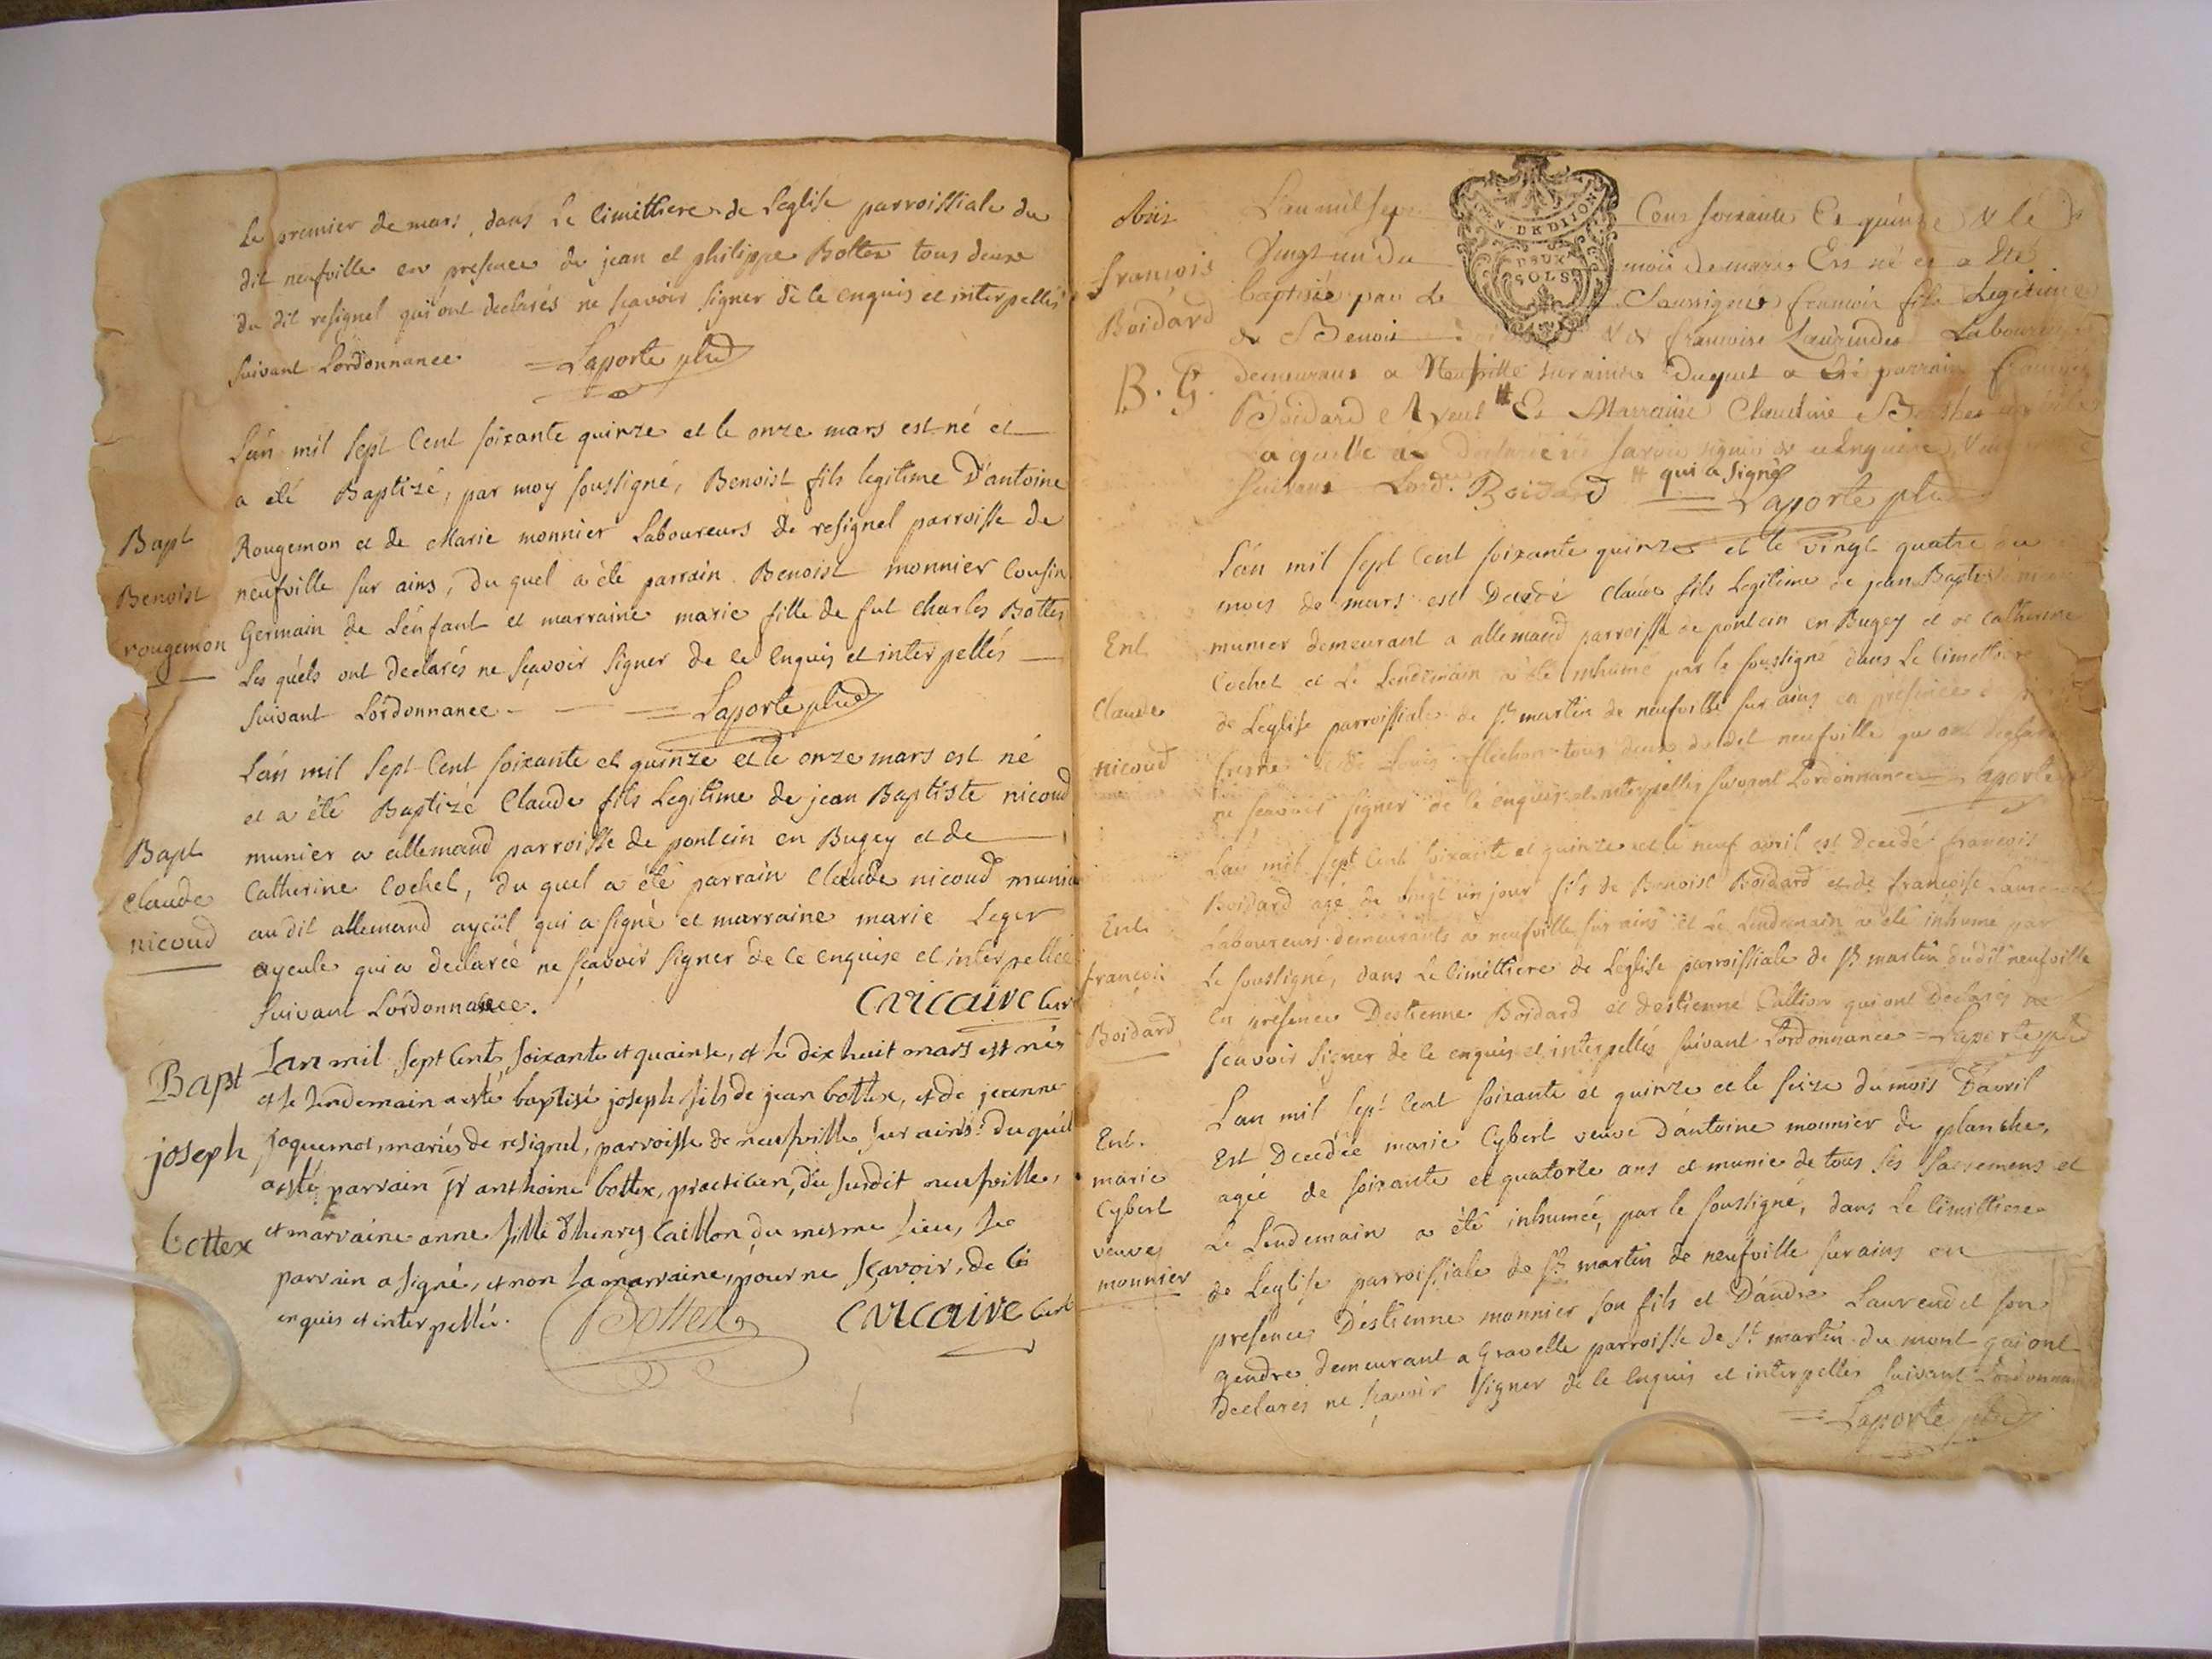 Le premier de mars, dans Le Cimittiere de Leglise parroissiale du
dit neufville en presence de jean et philippe Bottex tous deux
du dit resignel qui ont declarés ne sçavoir signer de ce enquis et interpellés
suivant Lordonnance Laporte
Lán mil sept Cent soixante quinze et le onze mars est né et
a été Baptizé, par moy soussigné, Benoist fils legitime D'antoine
Bapt
Rougemon et de Marie monnier Laboureurs de resignel parroisse de
Benoist
neufville sur ains, du quel a été parrain Benoist monnier Cousin
rougemon
Germain de Lénfant et marraine marie fille de fut Charles Bottex
Les quéls ont declarés ne sçavoir signer de ce enquis et interpellés
suivant Lórdonnance Laporte
Lán mil sept Cent soixante et quinze et le onze mars est né
et a été Baptizé Claude fils Legitime de jean Baptiste nicoud
Bapt
munier a allemand parroisse de pontcin en Bugey et de
Claude
Catherine Cochet, du quel a été parrain Claude nicoud munie
nicoud
au dit allemand ayeüil qui a signé et marraine marie Leger
ayeule qui a declareé ne sçavoir signer de ce enquise et interpellée
suivant Lórdonnance. Curé
Bapt
Lan mil sept Cents soixante et quainse, et le dix huit mars est nés
et le lendemain a esté baptisé joseph fils de jean bottex, et de jeanne
joseph
joquemot, mariés de resignel, parroisse de neufville sur ains. du quél
a esté parrain Sr anthoine bottex, practicien, du susdit neufville,
bottex
et marraine anne fille d'henry Caillon du mesme lieu, le
parrain a signé, et non la marraine, pour ne sçavoir, de ce
enquis et interpellée. Bottex Curé
GEN DE DIION
DEUX SOLS
L'an mil sept Cens soixante Et quinze & le
françois
Vingt un du mois de mars Est né et a été
Boidard
baptisé par Le Soussigné francois fils Legitime
de Benoit & de francoise Laurendet Laboureurs
B. G.
demeurans a Neufville sur ains Duquel a été parrain
Boidard Ayeul # Et Marraine Claudine
Laquelle a Declaré ne savoir signer de ce Enquise
suivant Lord. Boidard # qui a signé Laporte
Lán mil sept Cent soixante quinze et le vingt quatre du
mois de mars est Decedé Claude fils Legitime de jean Baptiste
Ent
munier demeurant a allemand parroisse de pontcin en Bugey et de Catherine
Cochet et Le Lendemain a été inhumé par le soussigné dans Le Cimettiere
Claude
de Léglise parroissiale de St martin de neufville sur ains en presence
nicoud
tous deux du dit neufville qui ont declaré
ne sçavoir signer de ce enquis et interpellés suivant Lordonnance Laporte
Lán mil sept Cent soixante et quinze et le neuf avril est Decedé francois
Boidard agé de vingt un jour fils de Benoist Boidard et de francoise
Ent.
Laboureurs demeurants a neufville sur ains et Le Lendemain a été inhumé par
françois
Le soussigné, dans Le Cimittiere de Léglise parroissiale de St martin dudit neufville
En presence Destienne Boidard et destienne Callion qui ont Declarés ne
Boidard
sçavoir signer de ce enquis et interpellés suivant Lórdonnance Laporte
Lan mil sept Cent soixante et quinze et le seize du mois Davril
Ent.
Est Decedée marie Cybert veuve D'antoine monnier de planche,
marie
ageé de soixante et quatorze ans et munie de tous ses sacremens et
Cybert
Le Lendemain a été inhumée, par le soussigné, dans Le Cimittiere
veuve
de Leglise parroissiale de St martin de neufville sur ains en
monnier
presence Déstienne monnier son fils et Dándre Laurendet son
gendre demeurant a Gravelle parroisse de St martin du mont qui ont
declarés ne sçavoir signer de ce enquis et interpellés suivant Lordonnan
Laporte